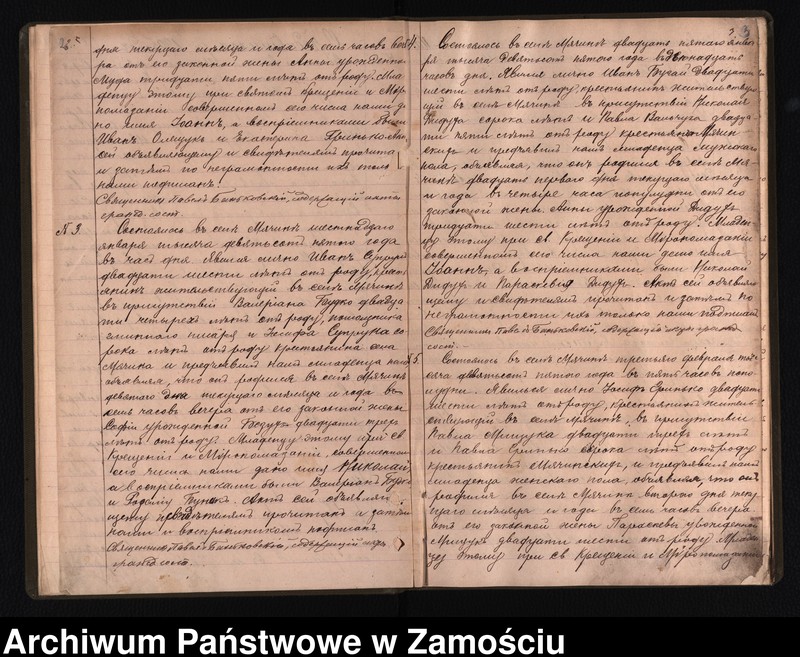 дня текущаго мѣсяца и года въ семь часовъ
ра отъ его законной жены Анны урожденной
тридцати пяти лѣтъ отъ роду. Мла
денцу этому при святомъ крещеніи и Мѵро
помазаніи совершенномъ сего числа нами да
но имя Іоаннъ, а воспріемниками были
Иванъ и Екатерина
сей объявляющему и свидѣтелямъ прочита
и затѣмъ по неграмотности ихъ толь
нами подписанъ.
Священникъ Павелъ содержащій акты
гражд. сост.
N 3.
Состоялось въ селѣ Мячинѣ шестнадцаго
января тысяча девятьсотъ пятого года
въ часъ дня. Явился лично Иванъ
двадцати шести лѣтъ отъ роду, крес
янинъ жительствующій въ селѣ Мячинѣ
въ присутствіи Валеріана Будко двадца
ти четырехъ лѣтъ отъ роду, помощника
гминнаго писаря и Іосифа Супрука со
рока лѣтъ отъ роду крестьянина села
Мячина и предъявилъ намъ младенца
объявляя, что онъ родился въ селѣ Мячинѣ
девятаго дня текущаго мѣсяца и года въ
семь часовъ вечера отъ его законной жены
Софіи урожденной двадцати трехъ
лѣтъ отъ роду. Младенцу этому при св.
Крещеніи и Мѵропомазаніи, совершенномъ
сего числа нами дано имя Николай,
а воспріемниками были Валеріанъ Будко
и Розалія Актъ сей объявляю
щему и свидѣтелямъ прочитанъ и затѣмъ
нами и воспріемникомъ подписанъ.
Священникъ Павелъ содержащій акты
гражд. сост.
3
4.
Состоялось въ селѣ Мячинѣ двадцать пятаго янва
ря тысяча девятьсотъ пятого года въ
часовъ дня. Явился лично Иванъ двадцати
шести лѣтъ отъ роду, крестьянинъ жительствую
щій въ селѣ Мячинѣ въ присутствіи Николая
Дидуха сорока лѣтъ и Павла двадца
ти пяти лѣтъ отъ роду крестьянъ Мячин
скихъ и предъявилъ намъ младенца мужскаго
пола, объявляя, что онъ родился въ селѣ Мя
чинѣ двадцать перваго дня текущаго мѣсяца
и года въ четыре часа пополудни отъ его
законной жены Анны урожденной Дидухъ
тридцати шести лѣтъ отъ роду. Младен
цу этому при св. Крещеніи и Мѵропомазаніи
совершенномъ сего числа нами дано имя
Іоаннъ, а воспріемниками были Николай
Дидухъ и Параскевія Дидухъ. Актъ сей объявляю
щему и свидѣтелямъ прочитанъ и затѣмъ по
неграмотности ихъ только нами подписанъ.
Священникъ Павелъ содержащій акты гражд.
сост.
5.
Состоялось въ селѣ Мячинѣ третьяго февраля тыс
яча девятьсотъ пятого года въ пять часовъ попо
лудни. Явился лично Іосифъ Гринько двадцати
шести лѣтъ отъ роду, крестьянинъ житель
ствующій въ селѣ Мячинѣ, въ присутствіи
Павла Мищука двадцати лѣтъ
и Павла Гринько сорока лѣтъ отъ роду
крестьянъ Мячинскихъ, и предъявилъ намъ
младенца женскаго пола, объявляя, что онъ
родился въ селѣ Мячинѣ втораго дня теку
щаго мѣсяца и года въ семь часовъ вечера
отъ его законной жены Параскевы урожденной
Мищукъ двадцати шести лѣтъ отъ роду. Младен
цу этому при св Крещеніи и Мѵропомазаніи
Archiwum Państwowe w Zamościu